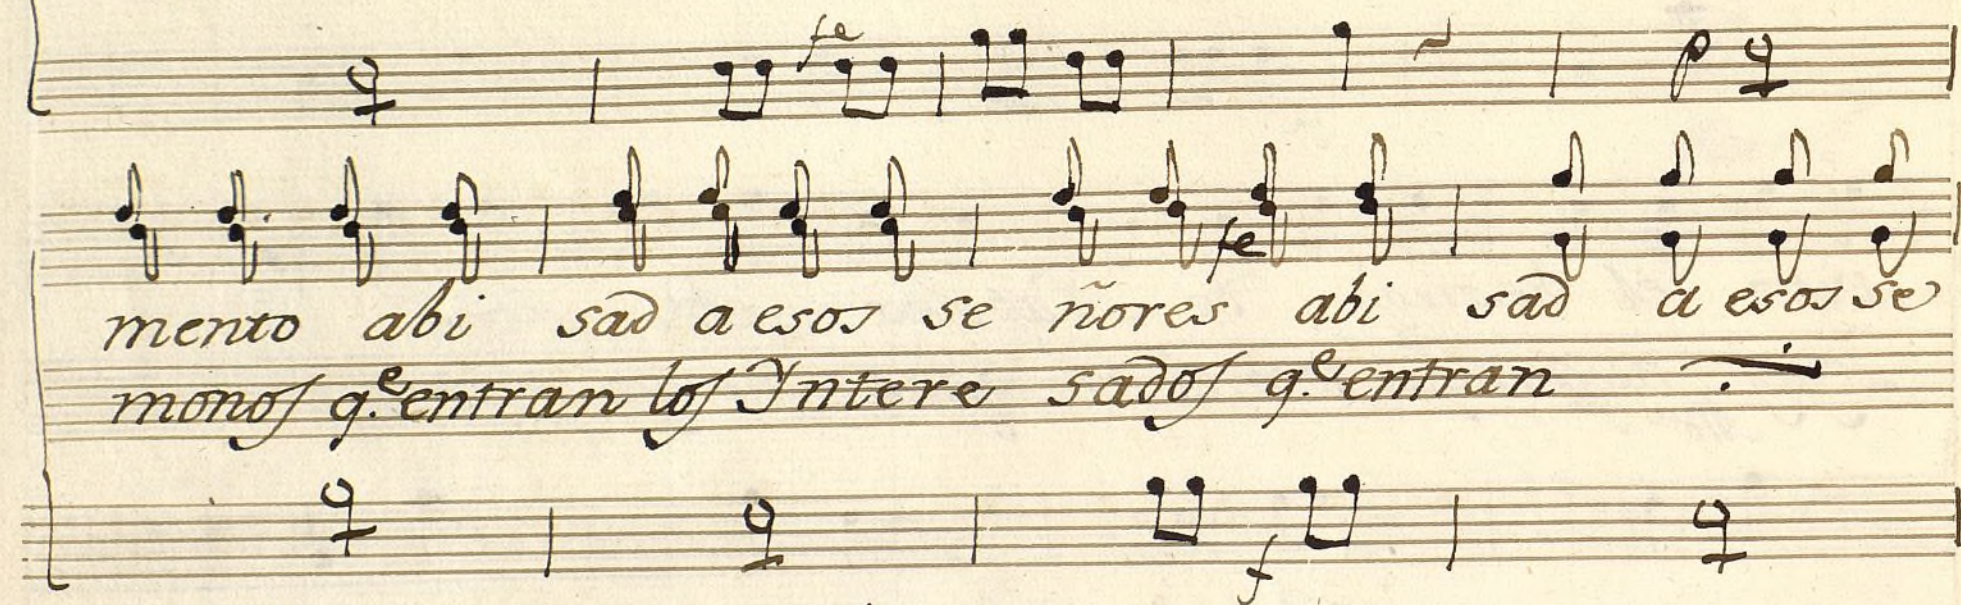 fe
p
fe
mento abi sad a esos se ñores abi sad a esos se
monos q.e entran los Yntere sados q.e entran
f